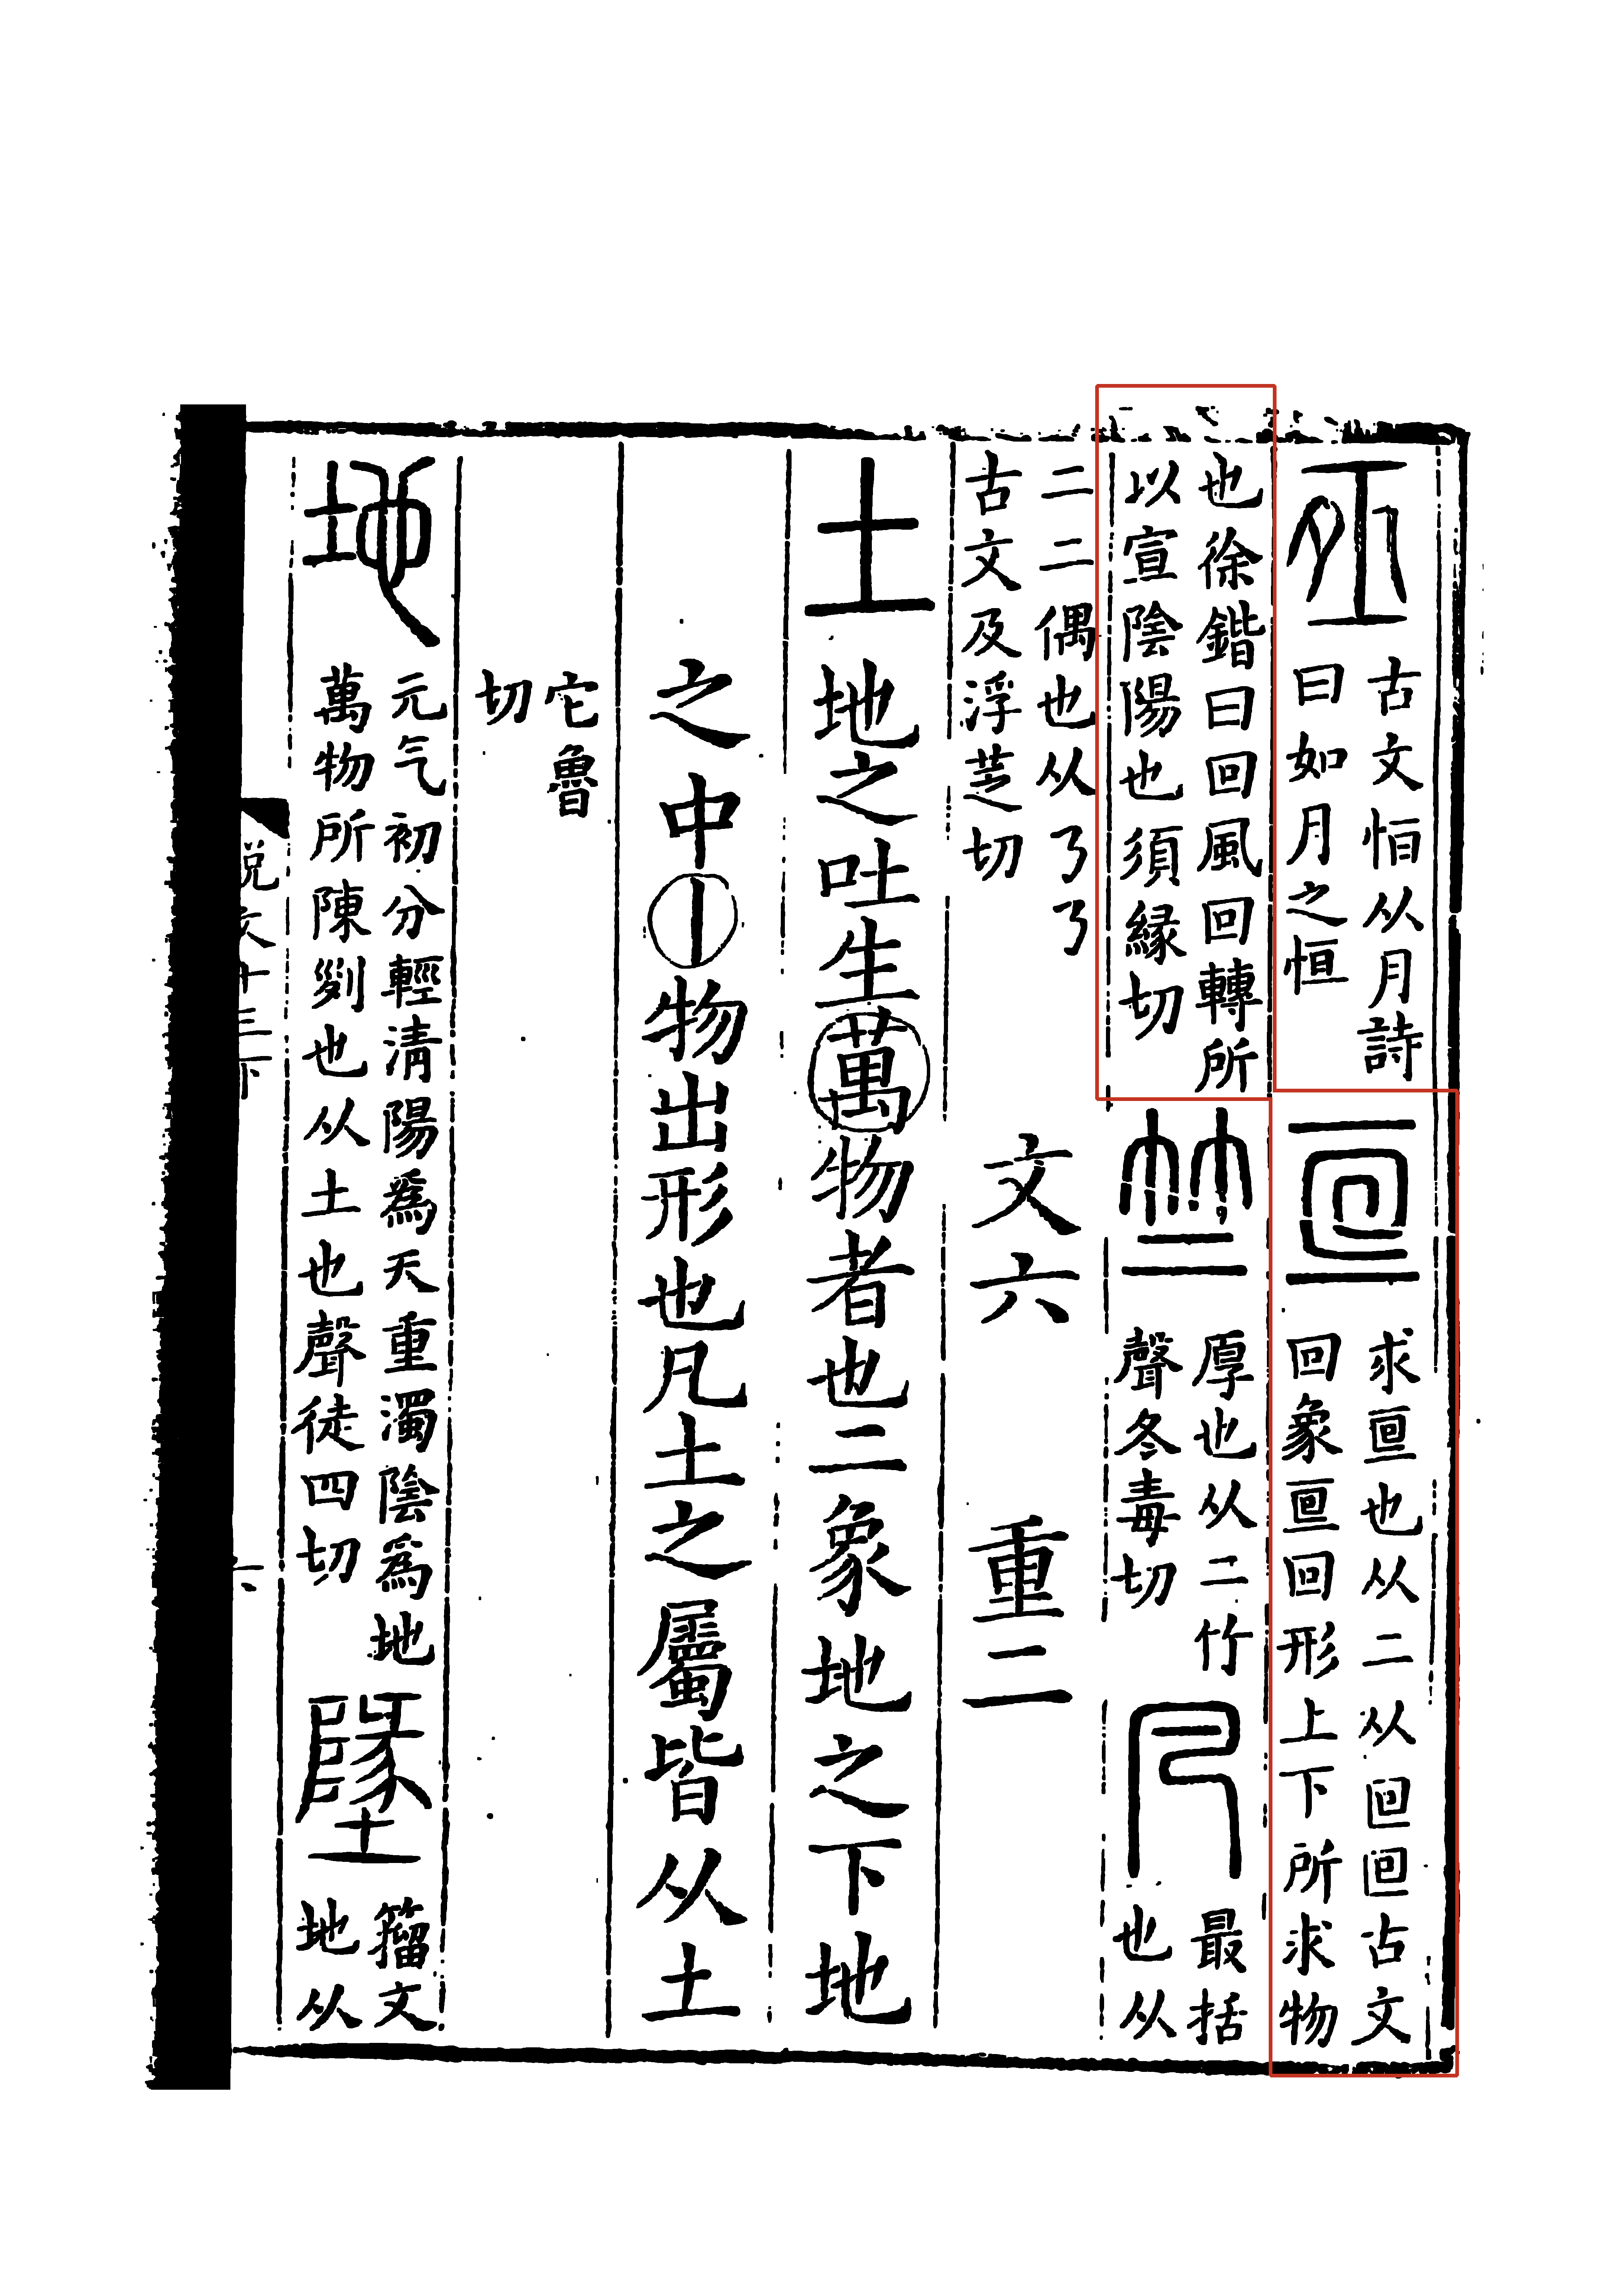 𠄨
古文恒从月詩
曰如月之恒
亘
求亘也从二从囘囘古文
回象亘回形上下所求物
也徐鍇曰回風回轉所
以宣陰陽也須緣切
竺
厚也从二竹
聲冬毒切
凡
最括
也从
二二偶也从𠄎𠄎
古文及浮芝切
文六 重二
土 地之吐生萬物者也二象地之下地
之中丨物出形也凡土之屬皆从土
它魯
切
地
元气初分輕清陽爲天重濁陰爲地
萬物所陳𠛱也从土也聲徒四切
墬
籒文
地从
說文十三下